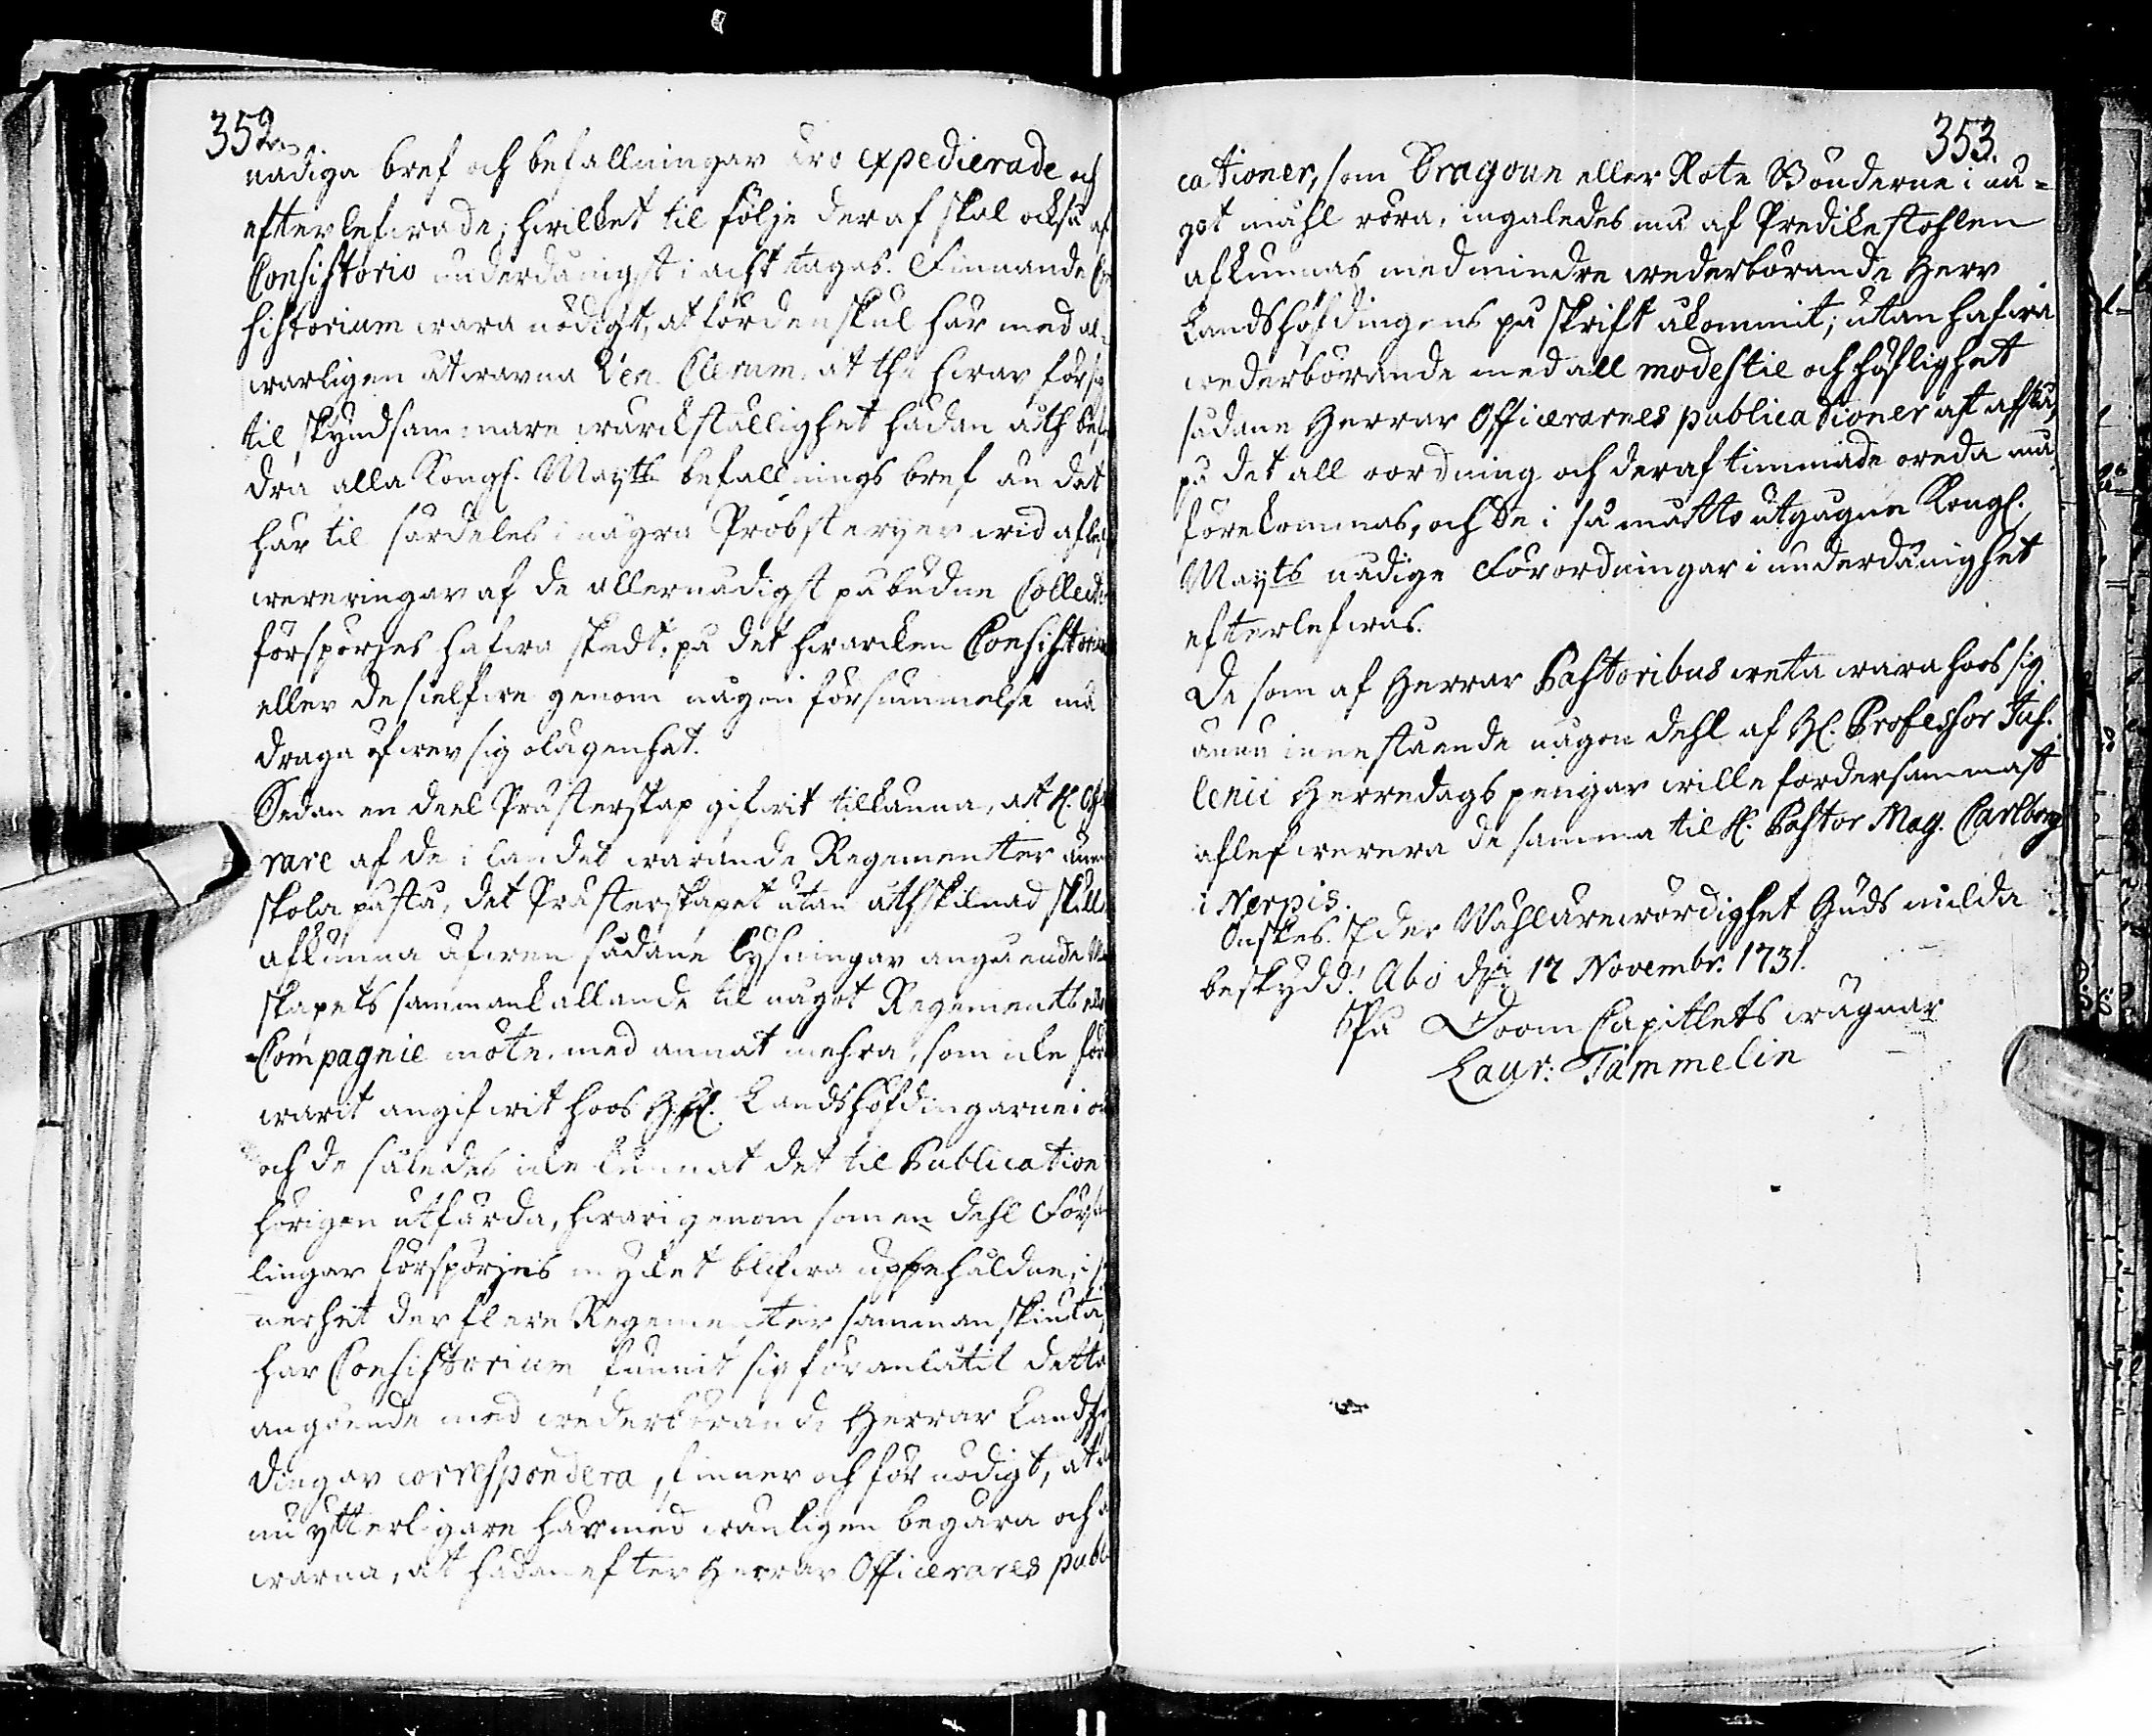 352.
nådiga bref och befallningar äro expedierade och
efterlefwade; hwilket til följe deraf skal också af
Consistorio underdånigst i acht tagas. Finnande Con
sistorium wara nödigt, at fördenskul här med al-
warligen åtwarna Ven. Clerum, at the hwar för sig
til skyndsammare wärckställighet hädan åth befor
dra alla Kongl. Maytts befallnings bref än det
här til särdeles i några Probsterÿer wid aflef
wereringar af de allernådigst påbudne Collecter
förspörjes hafwa skedt, på det hwarcken Consistorium
eller de sielfwe genom någon försummelse må
draga öfwer sig olägenhet.
Sedan en deel Prästerskap gifwit tilkänna, att H. Offi
rare af de i landet warande Regementer
skola påstå, det Prästerskapet utan åthskilnad skulle
afkunna äfwen sådane lysningar angående
skapets sammankallande til något Regements eller
Compagnie möte, med annat mehra, som icke för
warit angifwit hoos H.H. Landshöfdingarne i
och de således icke kunnat det til Publication
hörigen utfärda, hwarigenom som en dehl Försam
lingar förspörjes mycket blifwa uppehåldne, i
nerhet der flere Regementer sammanskiuta,
har Consistorium funnit sig föranlåtit detta
angående med wederbörande Herrar Landshöf
dingar correspondera, finner och för nödigt, at
nu ytterligare härmed wänligen begära och
warna, att hädanefter Herrar Officerares publi
353.
cationer, som Dragoun eller Rote Bönderne i nå-
got måhl röra, ingaledes må af Predikestohlen
afkunnas med mindre wederbörande Herr
Landshöfdingens påskrift åkommit; utan hafwa
wederbörande med all modestie och höflighet
sådane Herrar Officerarnes publicationer att afslå,
på det all oordning och deraf timmade oreda må
förekommas, och de i så motto utgågne Kongl.
Mayts nådige Förordningar i underdånighet
efterlefwas.
De som af Herrar Pastoribus weta wara hoos sig
ännu innestående någon dehl af H. Professor Juf.
lenii Herredags pengar wille fordersammast
aflefwerera de samma til H. Pastor Mag. Carlborg
i Nerpis.
Önskes Eder Wählärewördighet Guds milda
beskydd! Åbo d. 17 Novembr. 1731.
På Doom Capitlets wägnar
Laur: Tammelin